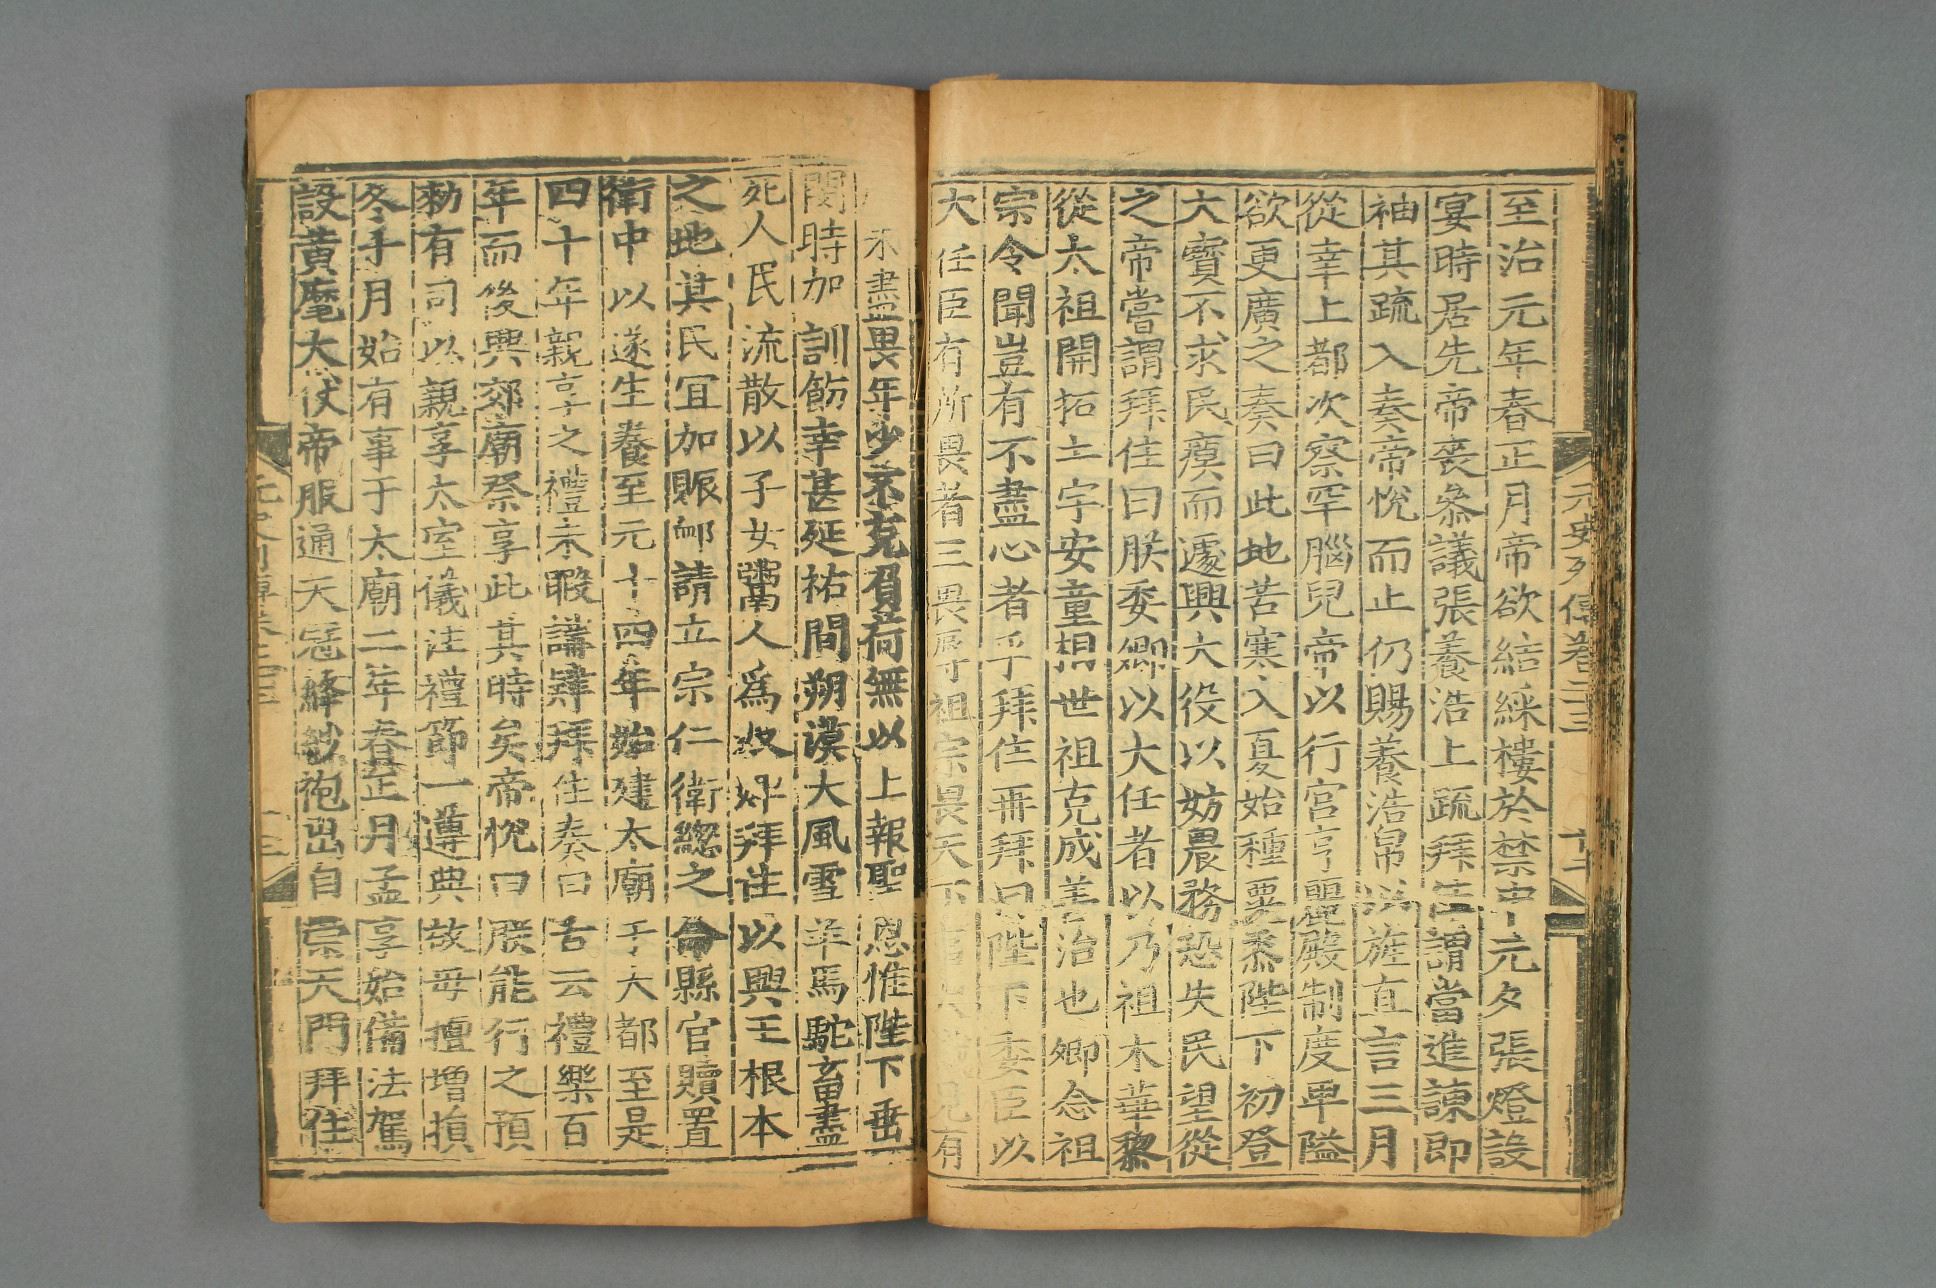 至治元年春正月帝欲結綵樓於禁中元夕張燈設
宴時居先帝喪叅議張養浩上疏拜住謂當進諫即
袖其疏入奏帝悅而止仍賜養浩帛以旌直言三月
從幸上都次察罕腦兒帝以行宮亨麗殿制度卑隘
欲更廣之奏曰此地苦寒入夏始種粟黍陛下初登
大寶不求民瘼而遽興大役以妨農務恐失民望從
之帝嘗謂拜住曰朕委卿以大任者以乃祖木華黎
從太祖開拓土宇安童相世祖克成善治也卿念祖
宗令聞豈有不盡心者乎拜住再拜曰陛下委臣以
大任臣有所畏者三畏辱祖宗畏天下事大識見有
未盡畏年少不克負荷無以上報聖恩惟陛下垂
閔時加訓飭幸甚延祐間朔漠大風雪羊馬駝畜盡
死人民流散以子女鬻人爲奴婢拜住以興王根本
之地其民宜加賑卹請立宗仁衛總之命縣官贖置
衛中以遂生養至元十四年始建太廟于大都至是
四十年親享之禮未暇講肄拜住奏曰古云禮樂百
年而後興郊廟祭享此其時矣帝悅曰朕能行之預
勑有司以親享太室儀注禮節一遵典故毋擅增損
冬十月始有事于太廟二年春正月孟享始備法駕
設黃麾大仗帝服通天冠絳紗袍出自崇天門拜住
元史列傳卷二十三
十二
元史列傳卷二十三
十三